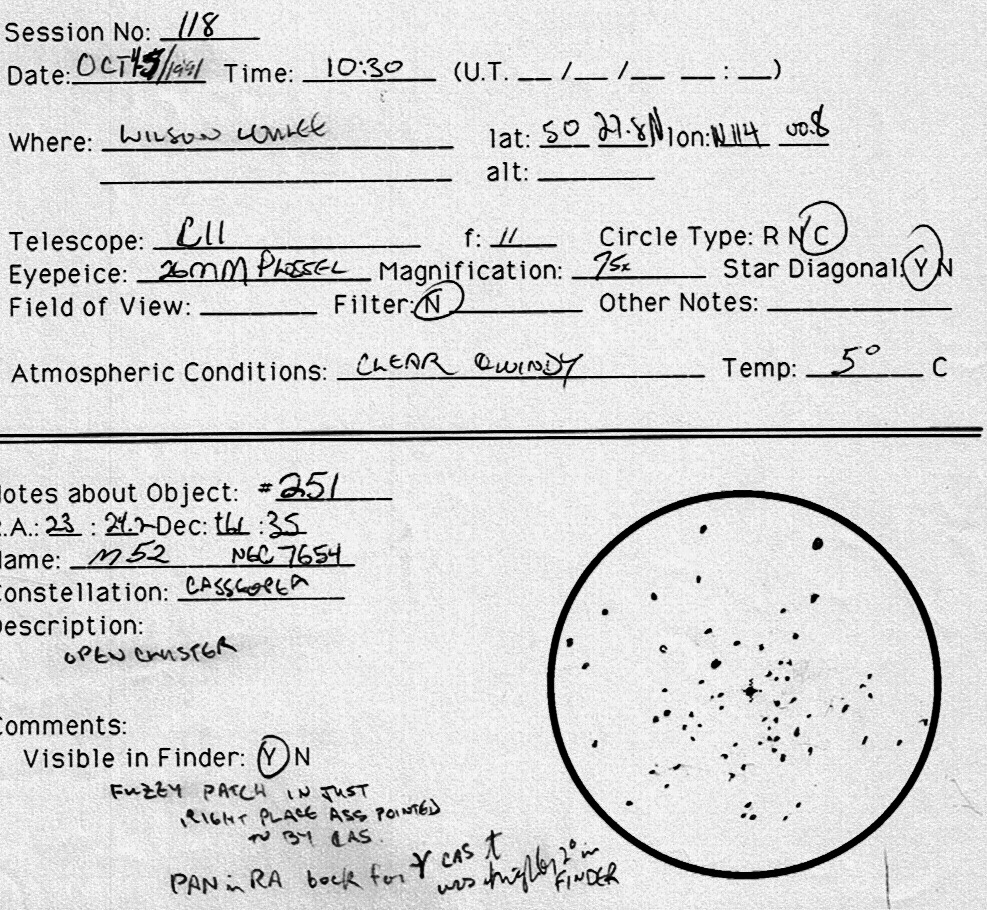 Session No: 118
Date: OCT /1991 Time: 10:30 (U.T. __ /__ /__ __ : __)
Where: WILSON COULEE lat: 50 27.8N lon: 114 00.8
alt:
Telescope: C11 f: 11 Circle Type: R N C
Eyepeice: 26MM PLOSSEL Magnification: 75x Star Diagonal: Y N
Field of View: Filter: N Other Notes:
Atmospheric Conditions: CLEAR WINDY Temp: 5° C
Notes about Object: #251
R.A.: 23 : 24.2 Dec: +61 : 35
Name: M52 NGC 7654
Constellation: CASSIOPEA
Description:
OPEN CLUSTER
Comments:
Visible in Finder: Y N
FUZZY PATCH IN JUST
RIGHT PLACE ASS POINTED
TO BY CAS.
PAN in RA back for γ CAS
was 2° in
FINDER